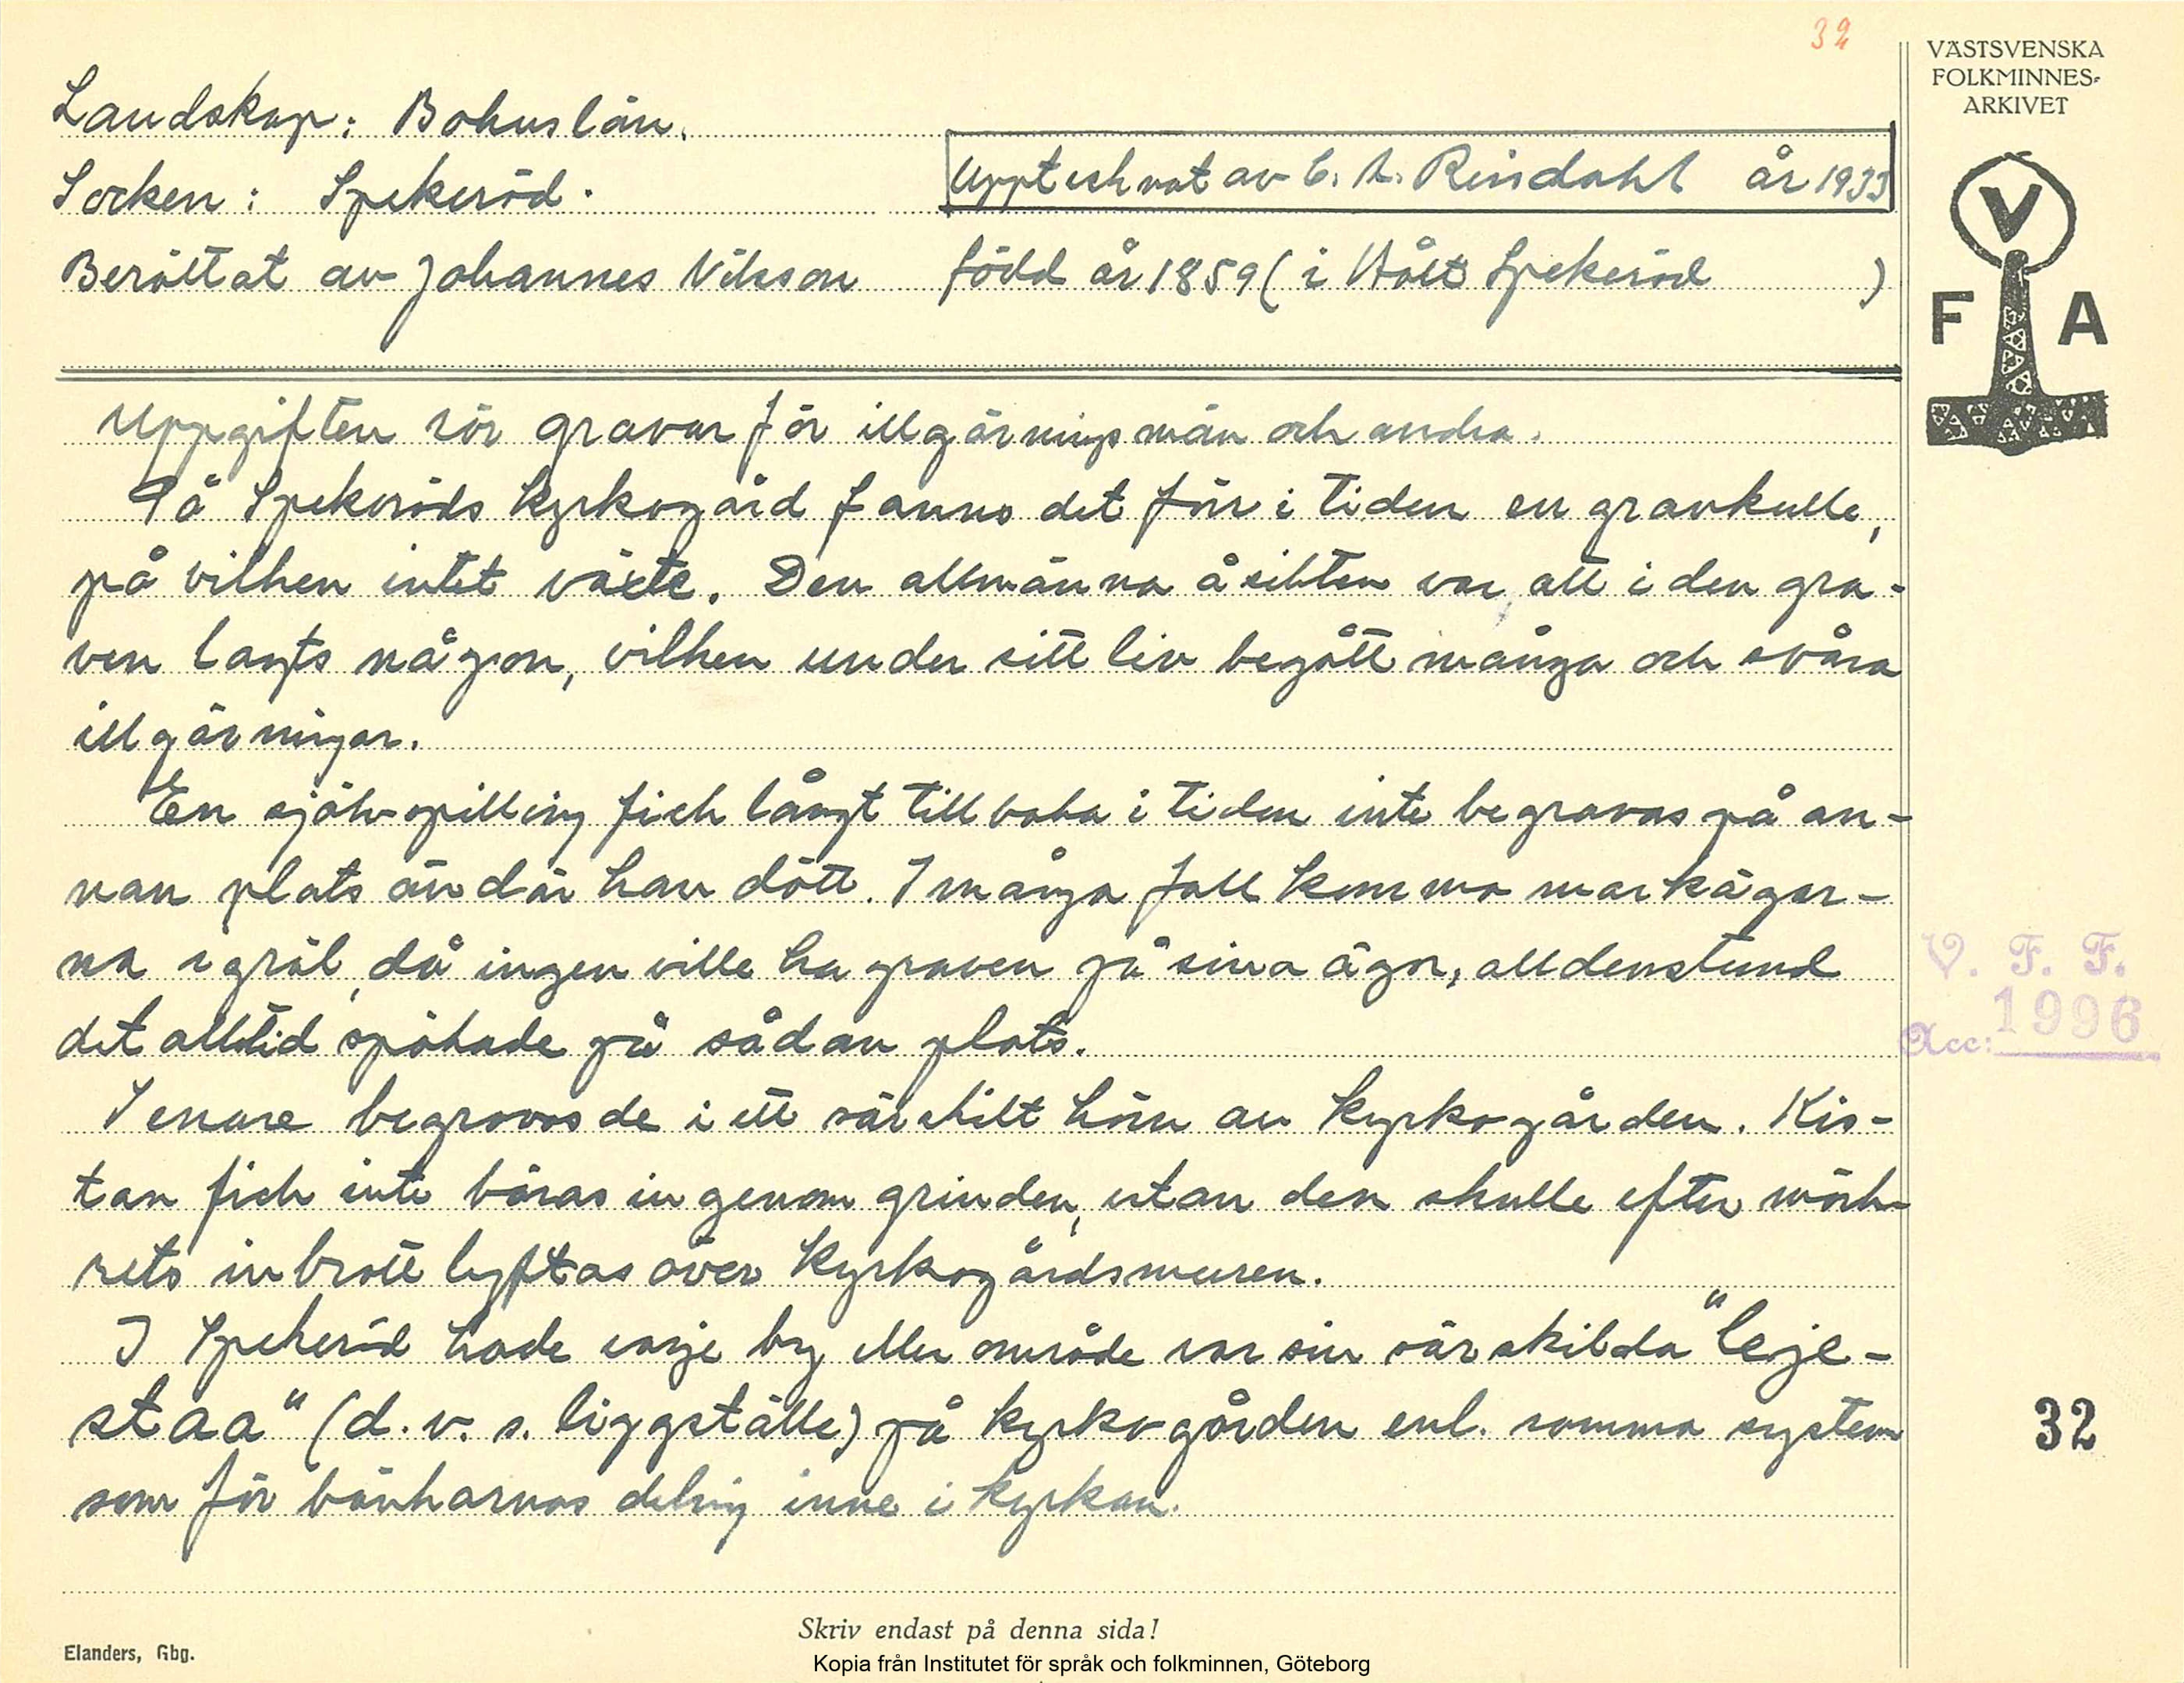 32
VÄSTSVENSKA
FOLKMINNES-
ARKIVET
Landskap: Bohuslän.
Socken: Spekeröd.
Upptecknat av C. A. Rindahl år 1933
Berättat av Johannes Nilsson född år 1859 (i Spekeröd )
V
F A
Uppgiften rör gravar för illgärningsmän och andra.
På Spekeröds kyrkogård fanns det förr i tiden en gravkulle,
på vilken intet växte. Den allmänna åsikten var, att i den gra-
ven lagts någon, vilken under sitt liv begått många och svåra
illgärningar.
En självspilling fick långt tillbaka i tiden inte begravas på an-
nan plats än där han dött. I många fall komma markägar-
na i gräl, då ingen ville ha graven på sina ägor, alldenstund
det alltid spökade på sådan plats.
Senare begravos de i ett särskilt hörn av kyrkogården. Kis-
tan fick inte bäras in genom grinden, utan den skulle efter mörk-
rets inbrott lyftas över kyrkogårdsmuren.
I Spekeröd hade varje by eller område var sin särskilda "leje-
staa" (d.v.s. liggställe) på kyrkogården enl. samma system
som för bänkarnas delning inne i kyrkan.
V. F. F.
Acc: 1996
32
Skriv endast på denna sida!
Elanders, Gbg.
Kopia från Institutet för språk och folkminnen, Göteborg